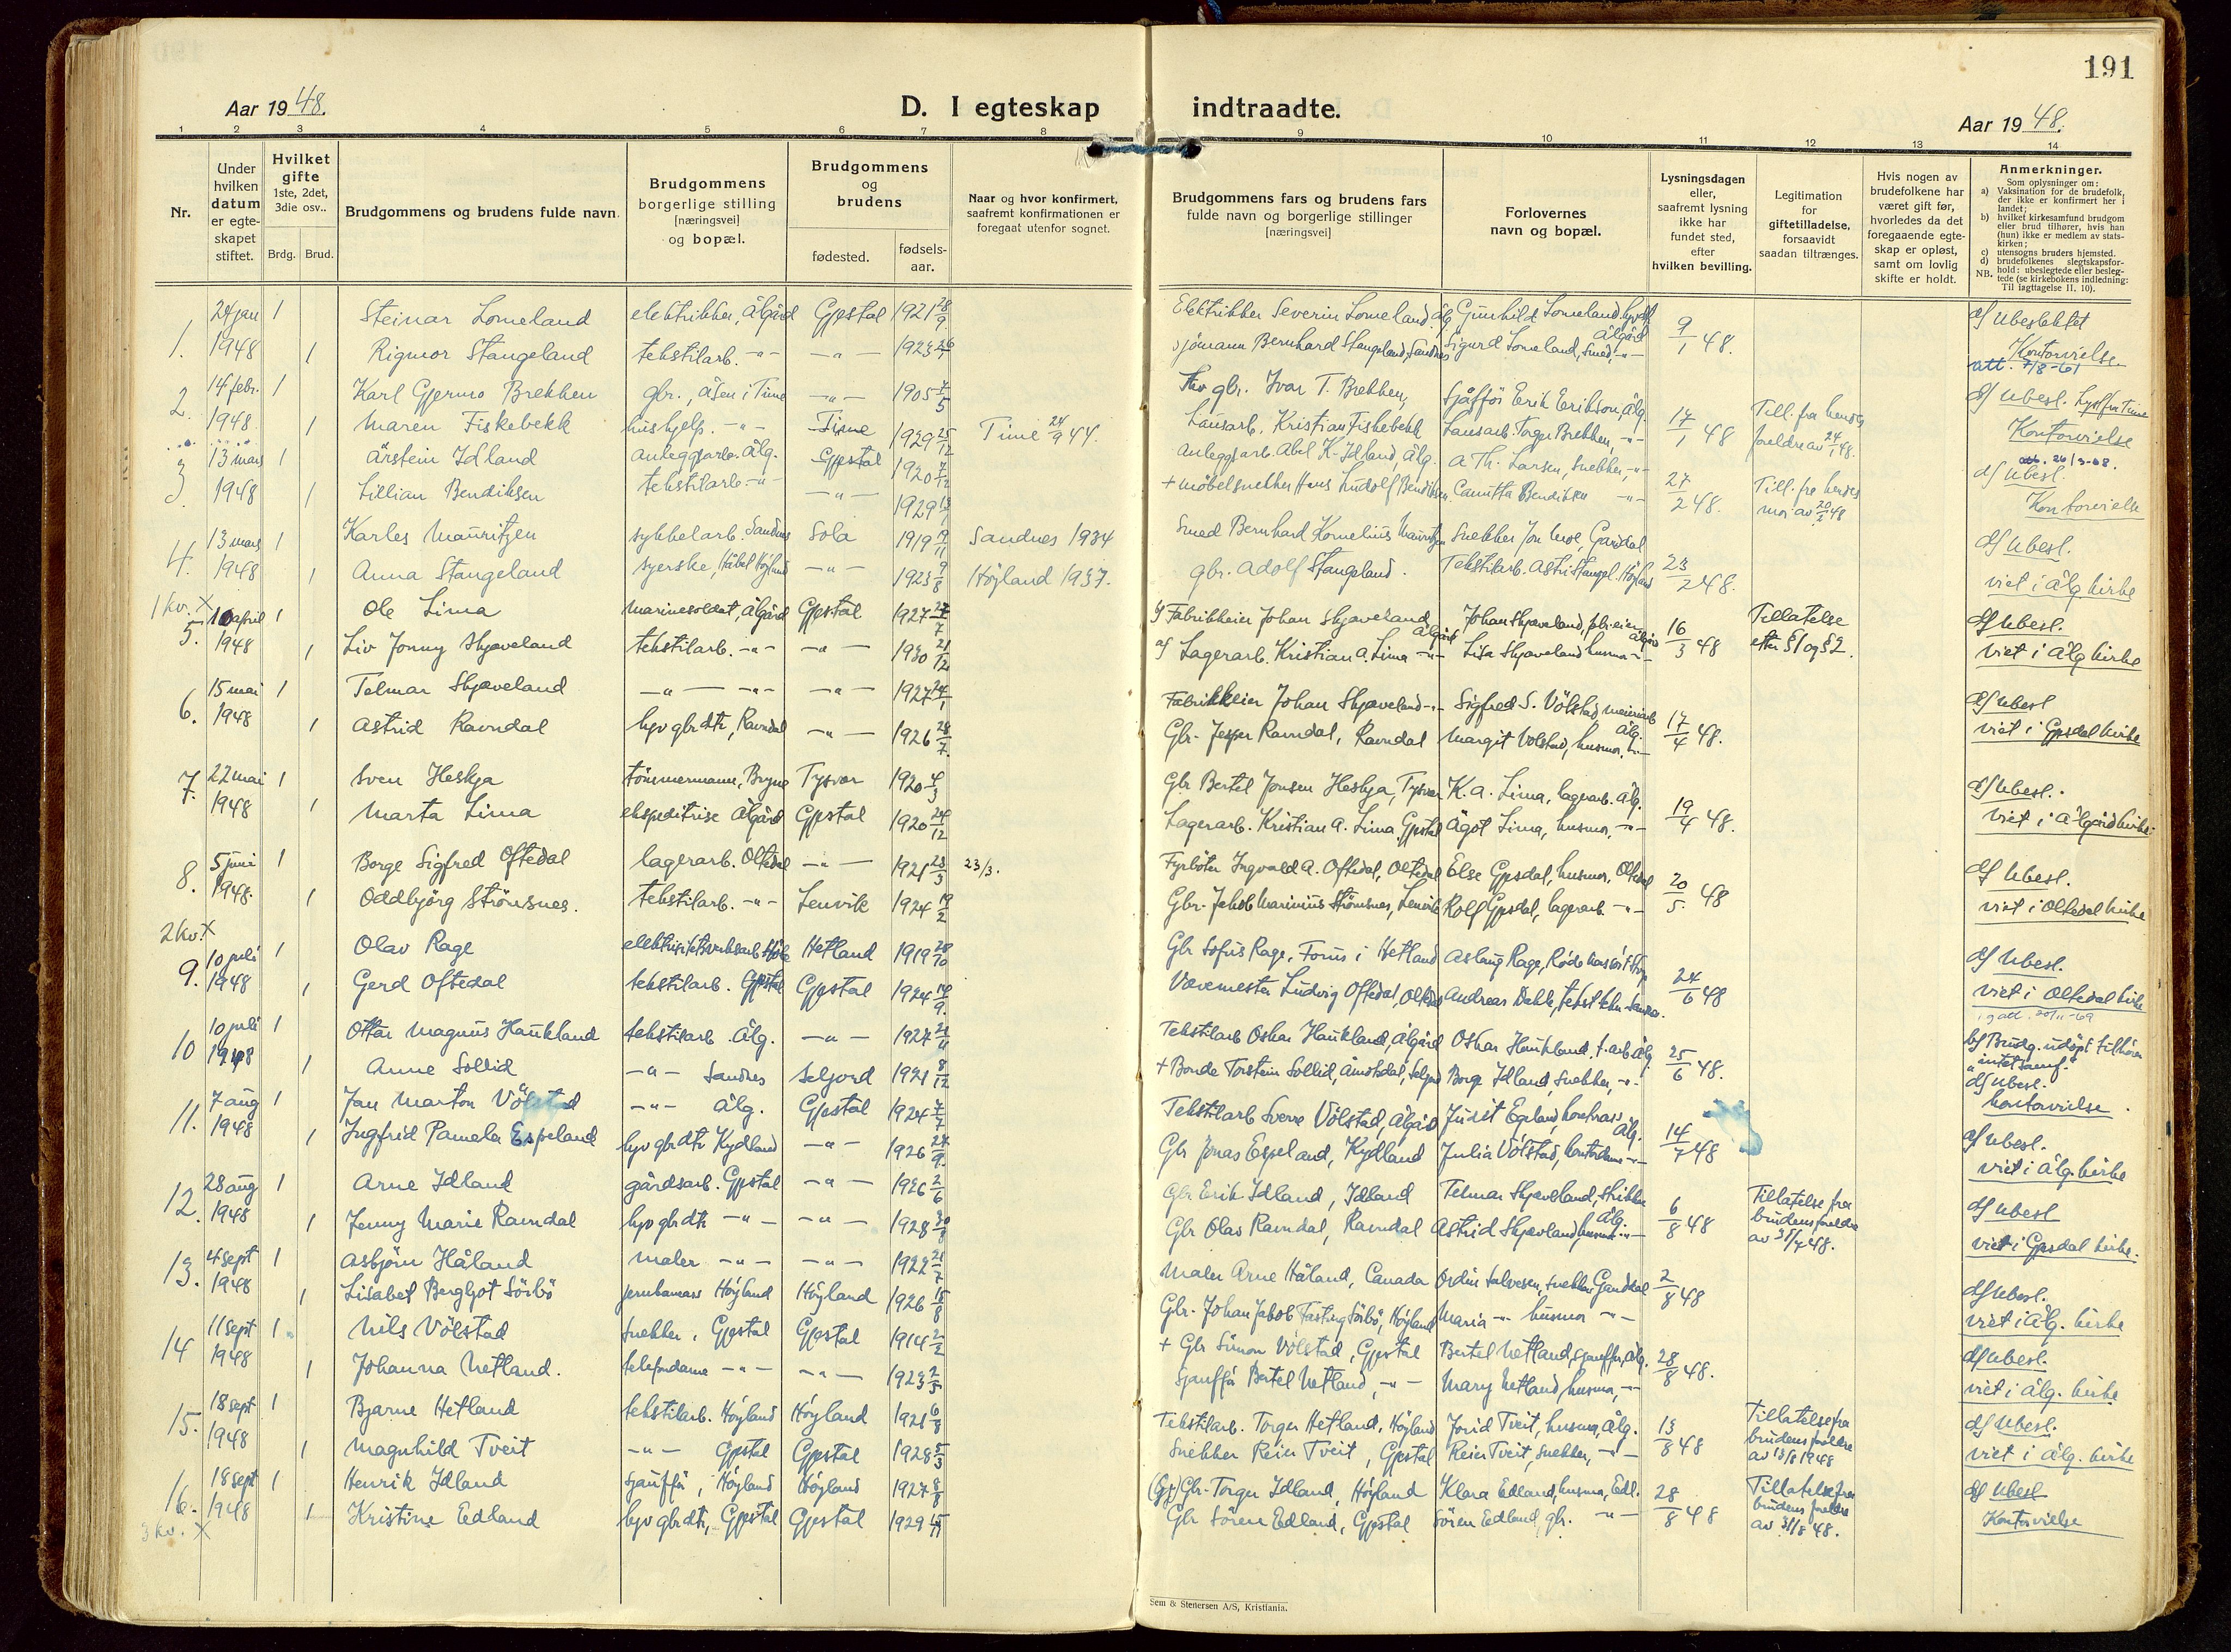 191
Aar 1948.
D. I egteskap indtraadte.
Aar 1948.
1 2 3 4 5 6 7 8 9 10 11 12 13 14
Nr.
Under hvilken datum er egte-skapet stiftet.
Hvilket gifte 1ste, 2det, 3die osv..
Brdg. Brud.
Brudgommens og brudens fulde navn.
Brudgommens borgerlige stilling [næringsvei] og bopæl.
Brudgommens og brudens
fødested. fødsels-aar.
Naar og hvor konfirmert, saafremt konfirmationen er foregaat utenfor sognet.
Brudgommens fars og brudens fars fulde navn og borgerlige stillinger [næringsvei]
Forlovernes navn og bopæl.
Lysningsdagen eller, saafremt lysning ikke har fundet sted, efter hvilken bevilling.
Legitimation for giftetilladelse, forsaavidt saadan tiltrænges.
Hvis nogen av brudefolkene har været gift før, hvorledes da det foregaaende egte-skap er opløst, samt om lovlig skifte er holdt.
Anmerkninger.
Som oplysninger om:
a) Vaksination for de brudefolk, der ikke er konfirmert her i landet;
b) hvilket kirkesamfund brudgom eller brud tilhører, hvis han (hun) ikke er medlem av stats-kirken;
c) utensogns bruders hjemsted.
d) brudefolkenes slegtskapsfor-hold: ubeslegtede eller besleg-tede (se kirkebokens indledning: Til iagttagelse II, 10).
NB.
1. 24 jan 1 Steinar Lomeland elektrikker, Ålgård Gjestal 1921 28/9 Elektrikker Severin Lomeland, Ålg Gunhild Lomeland Ålgård 9/1 48. d/ Ubeslektet
1948 1 Rigmor Stangeland tekstilarb. -"- -"- 1923 Sjömann Bernhard Stangeland, Sandnes Sigurd Lomeland, Smed, -"- Kontorvielse
att. 7/8-61
2. 14 febr. 1 Karl Gjermo Brekken gbr., Åsen i Time -"- 1905 7/5 gbr. Ivar T. Brekken, Sjåfför Erik Erikson, Ålg. 17/1 48 Till. fra hendes d/ Ubesl. Lyst fra Time
1948. 1 Maren Fiskebekk hushjelp. -"- Time 1929 25/12 Time 24/9 44. Lausarb. Kristian Fiskebekk Lausarb. Torger Brekken, -"- foreldre av 24/1 48. Kontorvielse
3. 13 mars 1 Årstein Idland anleggsarb. Ålg. Gjestal 1920 7/12 anleggsarb. Abel K. Idland, Ålg. A Th. Larsen, Snekker, -"- 27/2 48. Till. fra hendes mor av 20/2 48 att. 26/3-68. d/ Ubesl.
1948 1 Lillian Bendiksen tekstilarb -"- -"- 1929 + möbelsnekker Hans Ludolf Bendiksen Canutta Bendiksen -"- Kontorvielse
4. 13 mars 1 Karles Mauritzen sykkelarb. Sandnes Sola 1919 Sandnes 1934 Smed Bernhard Kornelius Mauritzen Snekker Jon Moe, Gandal 23/2 48. d/ Ubesl.
1948 1 Anna Stangeland syerske, Håbet Höyland -"- 1923 9/8 Höyland 1937. gbr. Adolf Stangeland. Tekstilarb. Astri Stangel. Höyland viet i Ålg kirke
1 kv. X
5. 10 april 1 Ole Lima marinesoldat, Ålgård Gjestal 1927 27/7 Fabrikkeier Johan Skjæveland Ålgård Johan Skjæveland, fabr.eier Ålgård 16/3 48 Tillatelse d/ Ubesl.
1948 1 Liv Jonny Skjæveland tekstilarb. -"- -"- 1930 21/12 Lagerarb. Kristian A. Lima -"- Lisa Skjæveland husmor -"- etter §1 og §2. viet i Ålg kirke
6. 15 mai 1 Telmar Skjæveland -"- -"- -"- 1927 Fabrikkeier Johan Skjæveland -"- Sigfred S. Völstad meieriarb Ålg. 17/4 48. d/ Ubesl
1948 1 Astrid Ravndal hjv gbrdtr, Ravndal -"- 1926 28/7. Gbr. Jesper Ravndal, Ravndal Margit Völstad, husmor, -"- viet i Gjesdal kirke
7. 22 mai 1 Sven Heskja tömmermann, Bryne Tysvær 1920 4/3 Gbr Bertel Jonsen Heskja, Tysvær K. A. Lima, lagerarb. Ålg. 19/4 48. d/ Ubesl.
1948 1 Marta Lima ekspeditrise Ålgård Gjestal 1920 24/12 Lagerarb. Kristian A. Lima, Gjestal Ågot Lima, husmor, -"- viet i Ålgård kirke
8. 5 juni 1 Borge Sigfred Oftedal lagerarb. Oltedal -"- 1921 23/3 23/3. Fyrböter Ingvald A. Oftedal, Oltedal Else Gjesdal, husmor, Oltedal 20/5. 48 d/ Ubesl.
1948. 1 Oddbjörg Strömsnes. tekstilarb. -"- Lenvik 1924 19/2 Gbr. Jakob Marinius Strömsnes, Lenvik Rolf Gjesdal, lagerarb. -"- viet i Oltedal kirke
2 kv. X
9. 10 juli 1 Olav Rage elektrisitetsverksarb Höle Hetland 1919 28/10 Gbr Sofus Rage, Forus i Hetland Aslaug Rage, 24/6 48 d/ Ubesl.
1948 1 Gerd Oftedal tekstilarb. Gjestal Gjestal 1924 19/9. Vævemester Ludvig Oftedal, Oltedal Andreas Dahle, viet i Oltedal kirke
10 10 juli 1 Ottar Magnus Haukland tekstilarb. Ålg. -"- 1927 Tekstilarb Oskar Haukland, Ålgård Oskar Haukland, t.arb Ålg 25/6 48. b/ Brudg. udöpt tilhörer
1948 1 Anne Sollid -"- Sandnes Seljord 1921 8/12 + Bonde Torstein Sollid, Åmotsdal, Seljord Borge Idland, Snekker, -"- "intet samf." d/ Ubesl. kontorvielse
11. 7 aug 1 Jan Marton Völstad -"- Ålg. Gjestal 1924 7/7 Tekstilarb Sverre Völstad, Ålgård Judit Egeland, Ålg. 14/7 48 d/ Ubesl.
1948 1 Ingfrid Pamela Espeland hjv gbrdtr Kydland -"- 1926 24/9. Gbr Jonas Espeland, Kydland Julia Völstad, kontordame -"- viet i Ålg. kirke
12. 28 aug 1 Arne Idland gårdsarb. Gjestal -"- 1926 2/6 Gbr Erik Idland, Idland Telmar Skjæveland, Ålg. 6/8 48 Tillatelse fra d/ Ubesl
1948 1 Jenny Marie Ravndal hjv gbrdtr -"- -"- 1928 Gbr Olav Ravndal, Ravndal Astrid Skjæveland, husmor -"- brudens foreldre av 31/7 48. viet i Gjesdal kirke.
13. 4 sept 1 Asbjörn Håland maler -"- -"- 1922 21/7 Maler Arne Håland, Canada Ordin Salvesen, snekker Ganddal 2/8 48 d/ Ubesl.
1948 1 Lisabet Bergljot Sörbö Höyland Höyland 1926 15/8 Gbr. Johan Jakob Fasting Sörbö, Höyland Maria -"- husmor -"- viet i Ålg. kirke
14 11 sept 1 Nils Völstad snekker, Gjestal Gjestal 1914 2/2 + Gbr Simon Völstad, Gjestal Bertel Netland, sjauffør, Ålg. 28/8 48. d/ Ubesl.
1948 1 Johanna Netland. telefondame -"- -"- 1923 2/5 Sjauffør Bertel Netland, -"- Mary Netland, husmor, -"- viet i Ålg. kirke
15. 18 sept 1 Bjarne Hetland tekstilarb. Höyland Höyland 1921 6/8 Tekstilarb. Torger Hetland, Höyland Jorid Tveit, husmor, Ålg. 13/8 48 Tillatelse fra d/ Ubesl.
1948 1 Magnhild Tveit -"- Gjestal Gjestal 1928 5/3 Snekker Reier Tveit, Gjestal Reier Tveit, snekker, -"- brudens foreldre av 13/8 1948 viet i Ålg. kirke
16. 18 sept 1 Henrik Idland sjauffør, Höyland Höyland 1927 8/8 Gbr. Torger Idland, Höyland Klara Edland, husmor, Edl. 28/8 48 Tillatelse fra d/ Ubesl
1948 1 Kristine Edland hjv gbrdtr, Gjestal Gjestal 1929 15/11 Gbr Sören Edland, Gjestal Sören Edland, gbr. -"- brudens foreldre av 31/8 48. Kontorvielse
3 kv. X
Sem & Stenersen A/S, Kristiania.